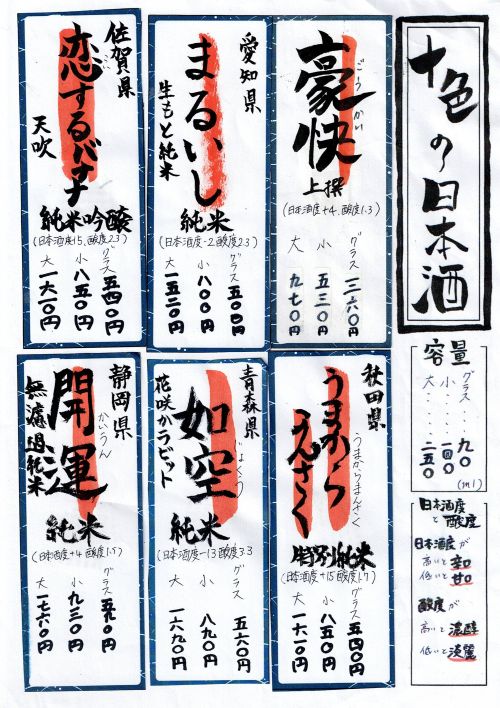 十色の日本酒
容量
グラス‥‥九〇
小‥‥一四〇
大‥‥二五〇
(ml)
日本酒度と酸度
日本酒度が
高いと辛口
低いと甘口
酸度が
高いと濃醇
低いと淡麗
ごうかい
豪快
上撰
(日本酒度+4、酸度1.3)
グラス 三六〇円
小 五三〇円
大 九七〇円
愛知県
まるいし
生もと純米
純米
(日本酒度-2 酸度2.3)
グラス 五〇〇円
小 八〇〇円
大 一五二〇円
佐賀県
恋するバナナ
天吹
純米吟醸
(日本酒度15、酸度2.3)
グラス 五四〇円
小 八五〇円
大 一六一〇円
秋田県
うまからまんさく
うまから
まんさく
特別純米
(日本酒度+15 酸度1.7)
グラス 五四〇円
小 八五〇円
大 一六一〇円
青森県
じょくう
如空
花咲かラビット
純米
(日本酒度-13 酸度3.3
グラス 五六〇円
小 八九〇円
大 一六九〇円
静岡県
かいうん
開運
無濾過純米
純米
(日本酒度+4 酸度1.5)
グラス 五九〇円
小 九三〇円
大 一七六〇円